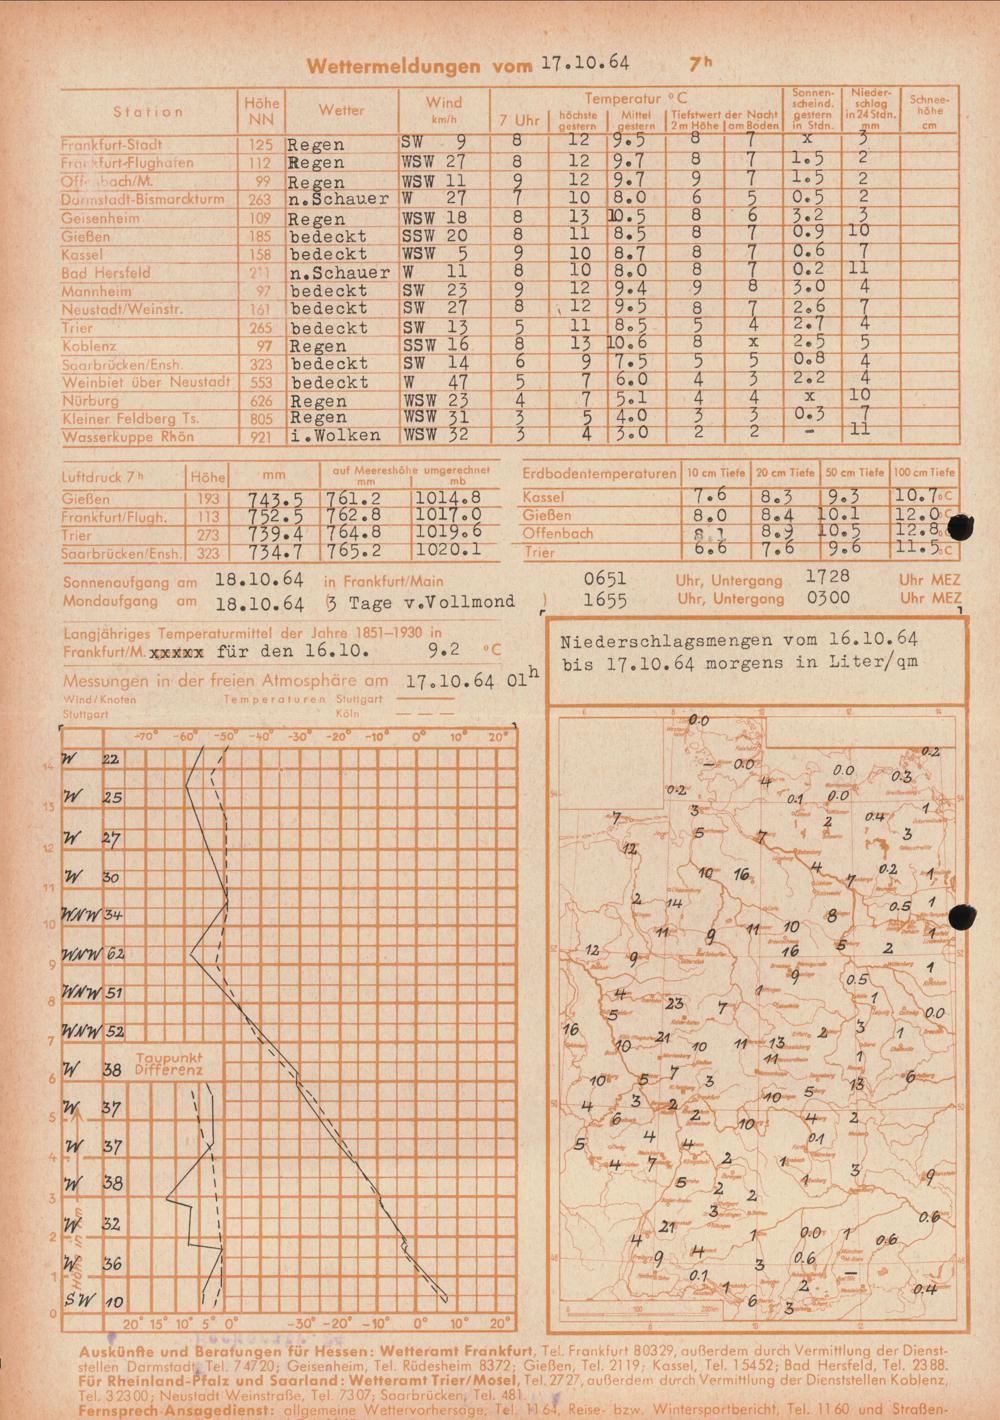 Wettermeldungen vom 17.10.64 7h
Station Höhe NN Wetter Wind km/h Temperatur °C Sonnen-scheind. gestern in Stdn. Nieder-schlag in 24 Stdn. mm Schnee-höhe cm
7 Uhr höchste gestern Mittel gestern Tiefstwert der Nacht 2 m Höhe am Boden
Frankfurt-Stadt 125 Regen SW 9 8 12 9.5 8 7 x 3
Frankfurt-Flughafen 112 Regen WSW 27 8 12 9.7 8 7 1.5 2
Offenbach/M. 99 Regen WSW 11 9 12 9.7 9 7 1.5 2
Darmstadt-Bismarckturm 263 n.Schauer W 27 7 10 8.0 6 5 0.5 2
Geisenheim 109 Regen WSW 18 8 13 10.5 8 6 3.2 3
Gießen 185 bedeckt SSW 20 8 11 8.5 8 7 0.9 10
Kassel 158 bedeckt WSW 5 9 10 8.7 8 7 0.6 7
Bad Hersfeld 211 n.Schauer W 11 8 10 8.0 8 7 0.2 11
Mannheim 97 bedeckt SW 23 9 12 9.4 9 8 3.0 4
Neustadt/Weinstr. 161 bedeckt SW 27 8 12 9.5 8 7 2.6 7
Trier 265 bedeckt SW 13 5 11 8.5 5 4 2.7 4
Koblenz 97 Regen SSW 16 8 13 10.6 8 x 2.5 5
Saarbrücken/Ensh. 323 bedeckt SW 14 6 9 7.5 5 5 0.8 4
Weinbiet über Neustadt 553 bedeckt W 47 5 7 6.0 4 3 2.2 4
Nürburg 626 Regen WSW 23 4 7 5.1 4 4 x 10
Kleiner Feldberg Ts. 805 Regen WSW 31 3 5 4.0 3 3 0.3 7
Wasserkuppe Rhön 921 i.Wolken WSW 32 3 4 3.0 2 2 - 11
Luftdruck 7h Höhe mm auf Meereshöhe umgerechnet mm mb
Gießen 193 743.5 761.2 1014.8
Frankfurt/Flugh. 113 752.5 762.8 1017.0
Trier 273 739.4 764.8 1019.6
Saarbrücken/Ensh. 323 734.7 765.2 1020.1
Erdbodentemperaturen 10 cm Tiefe 20 cm Tiefe 50 cm Tiefe 100 cm Tiefe
Kassel 7.6 8.3 9.3 10.7 °C
Gießen 8.0 8.4 10.1 12.0 °C
Offenbach 8.1 8.9 10.5 12.8 °C
Trier 6.6 7.6 9.6 11.5 °C
Sonnenaufgang am 18.10.64 in Frankfurt/Main 0651 Uhr, Untergang 1728 Uhr MEZ
Mondaufgang am 18.10.64 (3 Tage v.Vollmond ) 1655 Uhr, Untergang 0300 Uhr MEZ
Langjähriges Temperaturmittel der Jahre 1851–1930 in
Frankfurt/M. xxxxx für den 16.10. 9.2 °C
Messungen in der freien Atmosphäre am 17.10.64 01h
Wind/Knoten Temperaturen Stuttgart
Stuttgart Köln
Niederschlagsmengen vom 16.10.64
bis 17.10.64 morgens in Liter/qm
-70° -60° -50° -40° -30° -20° -10° 0° 10° 20°
W 22
14
W 25
13
W 27
12
W 30
11
WNW 34
10
WNW 62
9
WNW 51
8
WNW 52
7
W 38
Taupunkt
Differenz
6
W 37
5
W 37
4
W 38
3
W 32
2
W 36
1
SW 10
0
Höhe in km
20° 15 10 5 0° -30° -20° -10° 0° 10° 20°
0.0
0.2
- 0.0 0.0 0.3
4
0.2 0.1 0.0
3 1
7 2 0.4
5 7 3
12
4 0.2
10 16 7 1
2 14 0.5 1
8
11 9 11 10 1
12 9 16 5 2
9 0.5 1
4 1
23 7 1
5 0.0
16 21 3
10 11 13 2 1
11 1
10 5 7 3 13 6
4 3 2 10 5
6 2 10 4 2
5 4 4 0.1
4 7 2 1 3
5 1 9
3 2
3 0.6
21
4 1 0.0 1 0.6
9 4 3 0.6
0.1 -
1 2 0.4
6 3
Auskünfte und Beratungen für Hessen: Wetteramt Frankfurt, Tel. Frankfurt 80329, außerdem durch Vermittlung der Dienst-
stellen Darmstadt, Tel. 74720; Geisenheim, Tel. Rüdesheim 8372; Gießen, Tel. 2119; Kassel, Tel. 15452; Bad Hersfeld, Tel. 2388.
Für Rheinland-Pfalz und Saarland: Wetteramt Trier/Mosel, Tel. 2727, außerdem durch Vermittlung der Dienststellen Koblenz,
Tel. 32300; Neustadt Weinstraße, Tel. 7307; Saarbrücken, Tel. 481.
Fernsprech-Ansagedienst: allgemeine Wettervorhersage, Tel. 1164, Reise- bzw. Wintersportbericht, Tel. 1160 und Straßen-